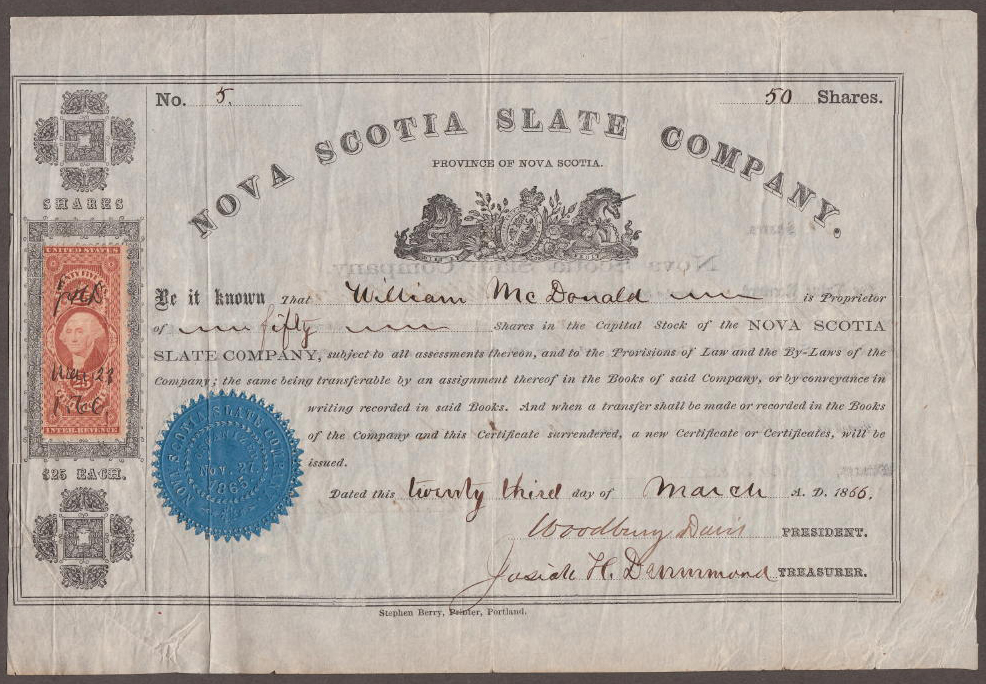 No. 5.
50 Shares.
NOVA SCOTIA SLATE COMPANY.
PROVINCE OF NOVA SCOTIA.
SHARES
UNITED STATES
Mar 23
$25 EACH.
Be it known That William McDonald is Proprietor
of fifty Shares in the Capital Stock of the NOVA SCOTIA
SLATE COMPANY, subject to all assessments thereon, and to the Provisions of Law and the By-Laws of the
Company; the same being transferable by an assignment thereof in the Books of said Company, or by conveyance in
writing recorded in said Books. And when a transfer shall be made or recorded in the Books
of the Company and this Certificate surrendered, a new Certificate or Certificates, will be
issued.
NOVA SCOTIA SLATE COMPANY
NOV. 27
1865
Dated this twenty third day of March A. D. 1866.
Woodbury Davis PRESIDENT.
Josiah H. Drummond TREASURER.
Stephen Berry, Printer, Portland.